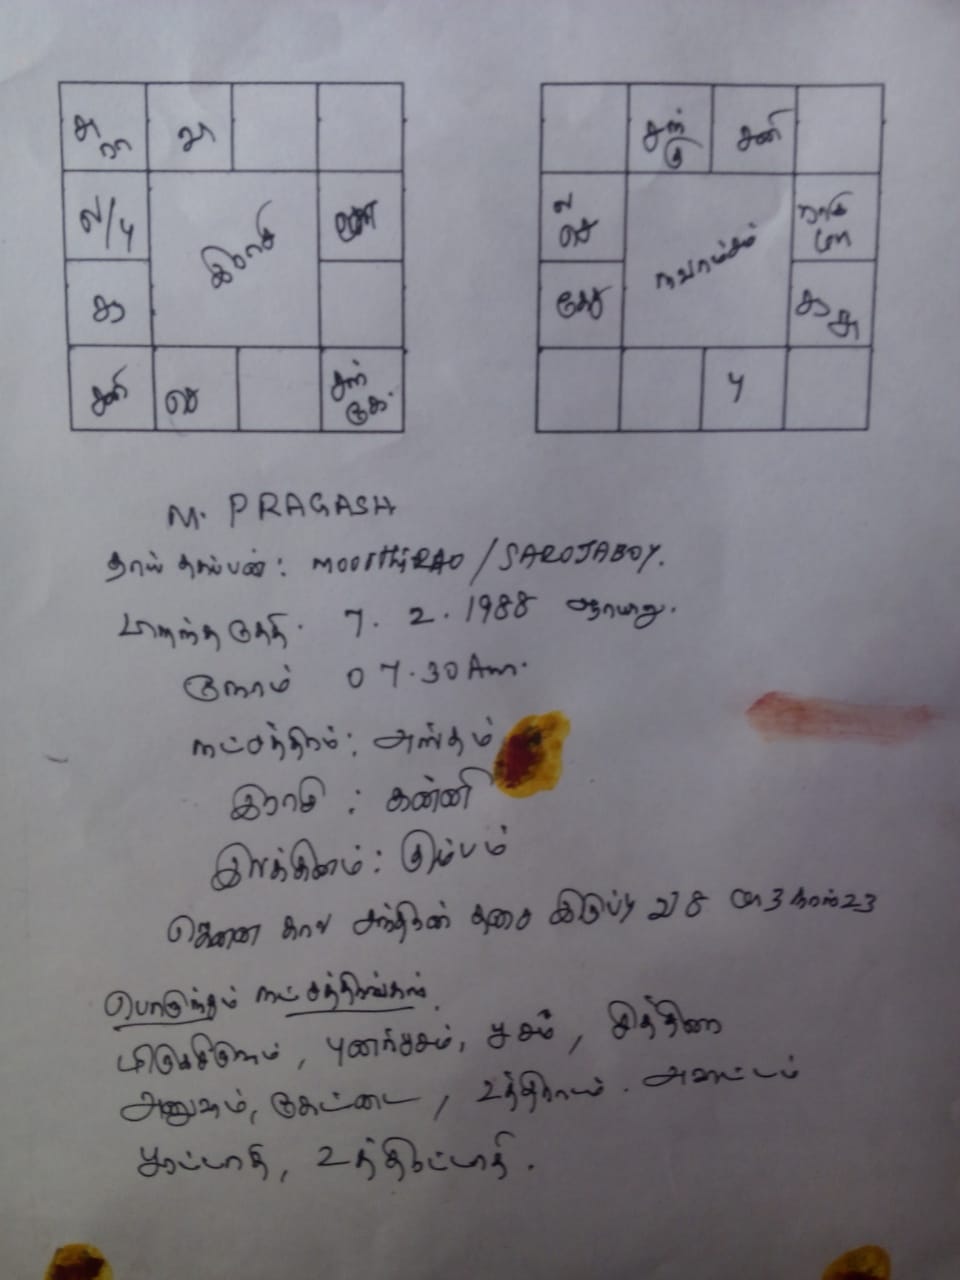 சு ரா
வி
ல/பு
குரு
சூ
சனி
செ
சந் கே
இராசி
சந் கு
சனி
ல செ
கேது
ராகு
சூ சு
பு
நவாம்சம்
M. PRAGASH
தாய் தகப்பன்: MOORTHYRAO / SAROJABOY.
பிறந்த தேதி. 7. 2. 1988 ஞாயிறு.
நேரம் 07.30 Am.
நட்சத்திரம்: அஸ்தம்
இராசி : கன்னி
இலக்கினம்: கும்பம்
சந்திரன் தசை இருப்பு வ 8 மா 3 நாள் 23
பொருந்தும் நட்சத்திரங்கள்.
மிருகசீரிடம், புனர்பூசம், பூசம், சித்திரை
அனுஷம், கேட்டை, உத்திராடம். அவிட்டம்
பூரட்டாதி, உத்திரட்டாதி.